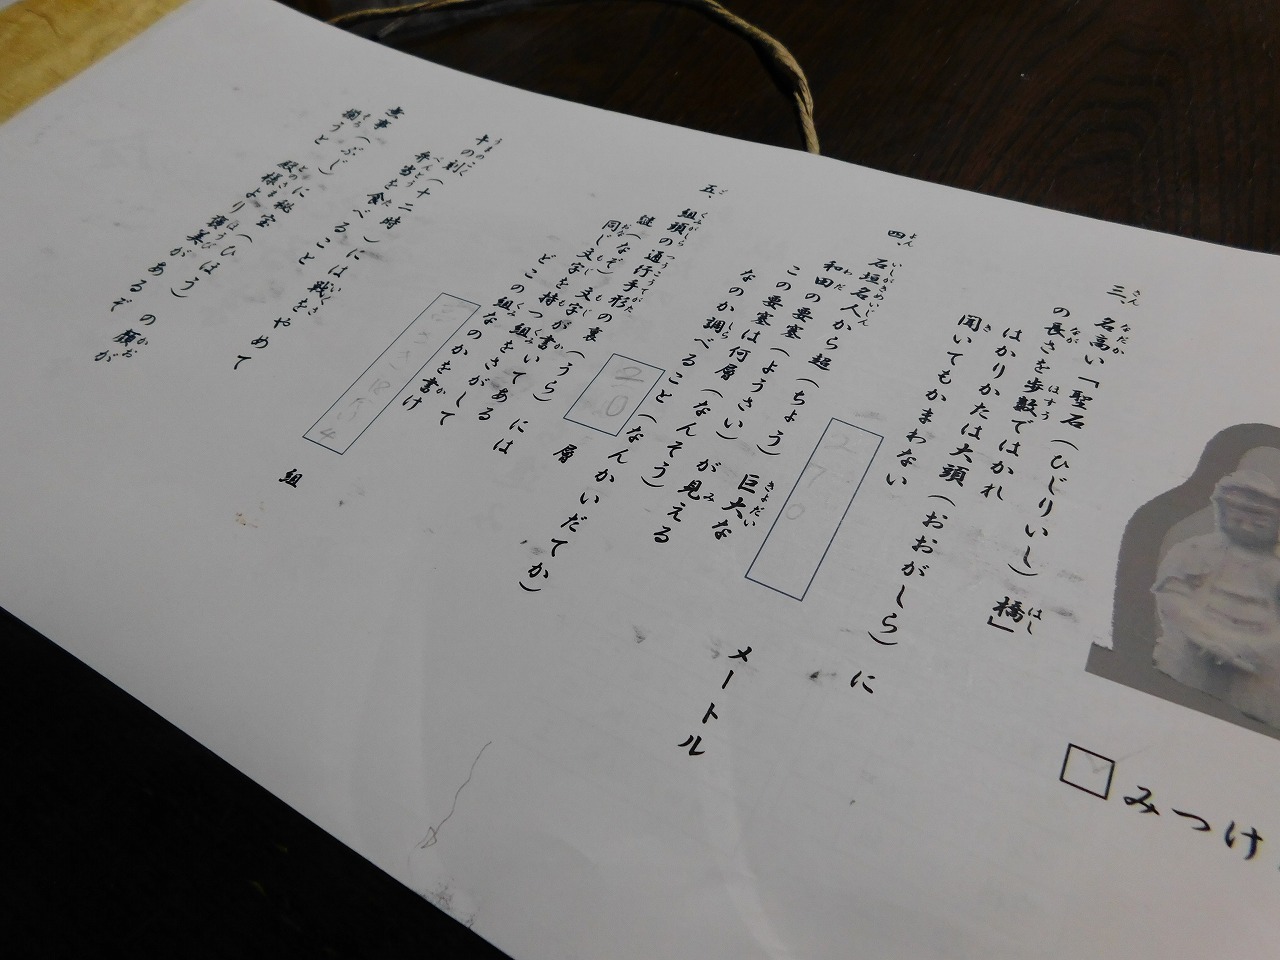 □みつけ
三、名高い「聖石（ひじりいし）橋」
の長さを歩数ではかれ
はかりかたは大頭（おおがしら）に
聞いてもかまわない
270メートル
四、石垣名人から超（ちょう）巨大な
和田の要塞（ようさい）が見える
この要塞は何層（なんそう）
なのか調べること（なんかいだてか）
20層
五、組頭の通行手形の裏（うら）には
謎（なぞ）文字が書いてある
同じ文字を持つ組をさがして
どこの組なのかを書け
組
午の刻（十二時）には戦をやめて
弁当を食べること
無事（ぶじ）に秘宝（ひほう）の顔が
揃うと殿様より褒美があるぞ